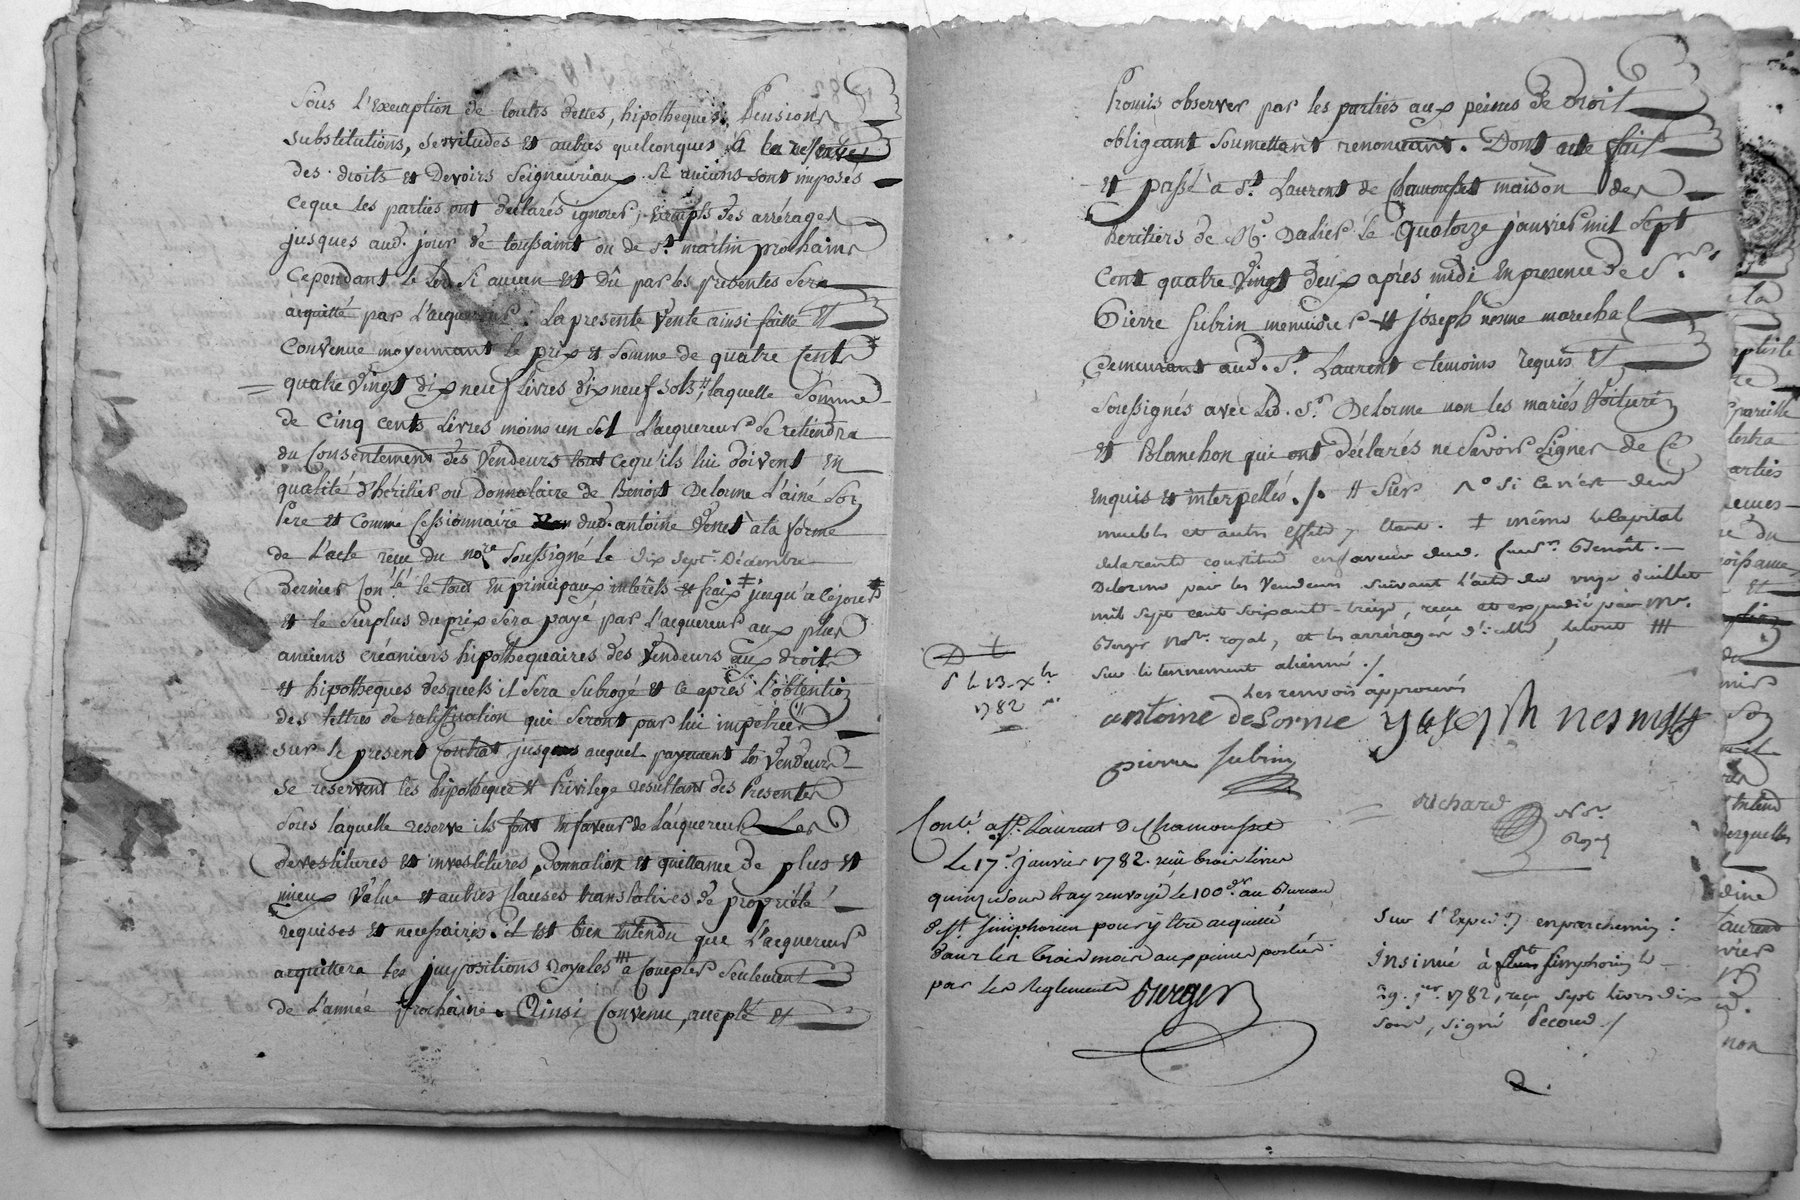 Sous l'Exemption de toutes dettes, hipotheques, Pensions
substitutions, servitudes et autres quelconques à la reserve
des droits et Devoirs Seigneuriaux si aucuns sont imposés
ceque les parties ont déclarés ignorer, exempts des arrérages
jusques aud. jour de toussaint ou de St martin prochain
Cependant le lod si aucun est Dû par les présentes sera
acquitté par l'acquereur. La presente Vente ainsi faitte et
convenue moyennant le prix et somme de quatre Cent
quatre Vingt dix neuf Livres dix neuf sols, laquelle somme
de Cinq Cents Livres moins un sol l'acquereur se retiendra
du Consentement des Vendeurs tout cequ'ils lui doivent en
qualité d'heritier ou Donnataire de Benoit Delorme l'ainé Son
Pere et Comme Cessionnaire dud. antoine Venet à la forme
de l'acte reçu du nore Soussigné le dix sept Décembre
Dernier Conlé le tout en principaux interêts et fraix ‡ jusqu'à cejour
et le surplus du prix sera payé par l'acquereur aux plus
anciens créanciers hipothequaires des Vendeurs aux droits
et hipotheques desquels il sera subrogé et ce après l'obtention
des lettres de ratiffication qui seront par lui impetrées
sur le présent Contrat, jusques auquel payement les Vendeurs
se reservent les hipotheque et Privilege resultant des Presentes
sous laquelle reserve ils font en faveur de l'acquereur Les
devestitures et investitures, Donnation et quittance de plus et
mieux Value et autres Clauses translatives de propriété
requises et necessaires. Et est bien entendu que l'acquereur
acquittera les impositions Royales à Compter seulement
de l'année Prochaine. Ainsi Convenu, accepté et
Promis observer par les parties aux peines de Droit
obligeant Soumettant renonceant. Dont acte fait
et passé à St Laurent de Chamousset maison des
heritiers de Mr. Dalier le Quatorze janvier mil sept
Cent quatre Vingt deux après midi en presence de Srs.
Pierre Subrin menuisier et joseph nesme marechal
demeurant aud. St Laurent temoins requis et
Soussignés avec led. Sr. Delorme non les mariés Voiturier
et Blanchon qui ont déclarés ne Savoir Signer de Ce
enquis et interpellés./. # Sur No si ce n'est deux
meubles et autres effets y étant. ‡ même le Capital
delarente constitué en faveur dud. feu Sr. Benoit
Delorme par les Vendeurs suivant l'acte du vingt Juillet
mil sept cent soixante-treize, reçu et expedié par Me.
Berger Nore. royal, et les arrérages d'icelle, letout ⧻
sur le tennement aliéné./
Les renvois approuvés
D t
le 13 Xbre
1782
antoine deLorme yoseph nesme
pierre subrin
richard Nre.
Royal
Conlé. a St. Laurent De Chamousset
Le 17. janvier 1782. reçu trois livres
quinze sous & ay renvoyé le 100e. der au Bureau
de St. Simphorien pour y être acquitté
dans les trois mois aux peines portées
par les Reglements Berger
Sur l'Expedon. en parchemin:
Insinué à St Simphorien le
29. jer. 1782, reçu sept livres dix
sous, signé Decour./
2.